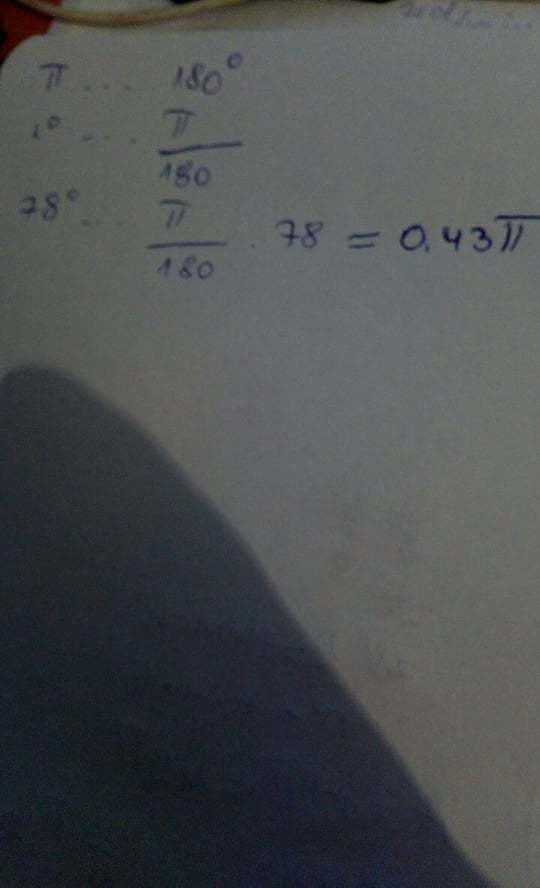 π ... 180°
1° ... π/180
78° ... π/180 · 78 = 0.43π